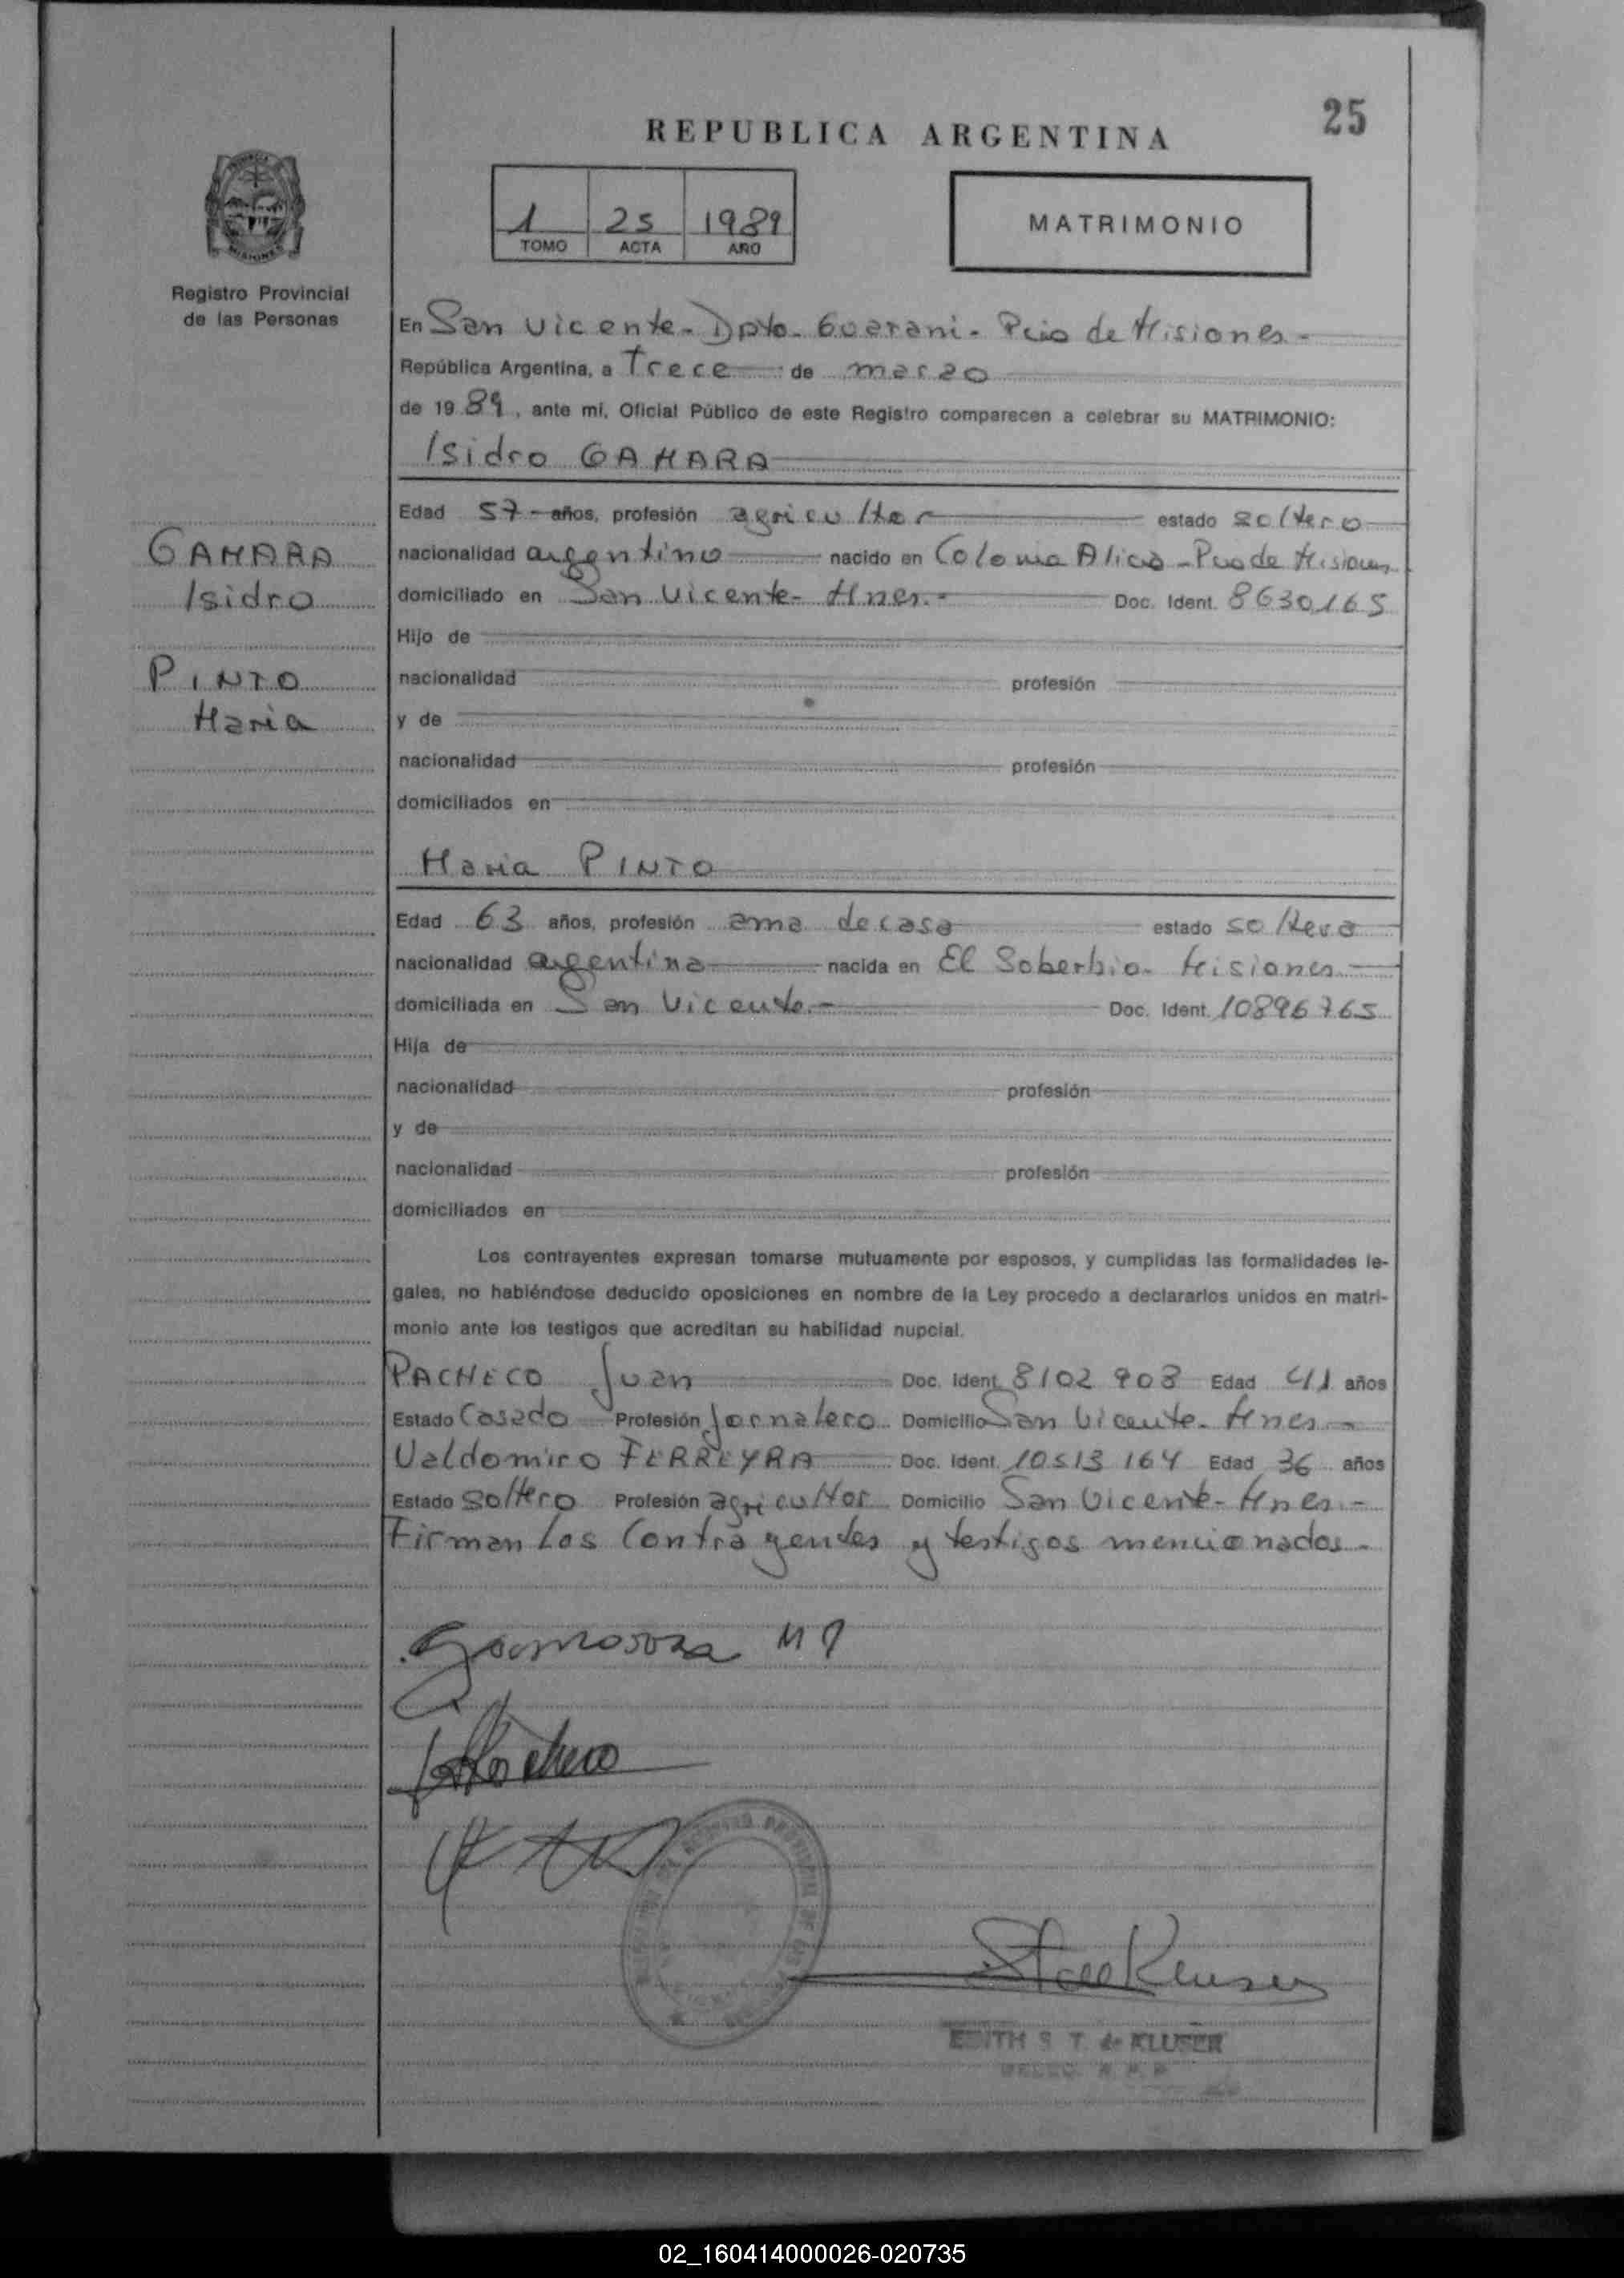 25
REPUBLICA ARGENTINA
1 25 1989
TOMO ACTA AÑO
MATRIMONIO
MISIONES
Registro Provincial
de las Personas
En San Vicente - Dpto. Guarani - Pcia de Misiones -
República Argentina, a Trece de marzo
de 1989, ante mí, Oficial Público de este Registro comparecen a celebrar su MATRIMONIO:
Isidro GAMARA
Edad 57 años, profesión agricultor estado soltero
GAMARA
Isidro
PINTO
Maria
nacionalidad argentino nacido en Colonia Alicia - Pcia de Misiones
domiciliado en San Vicente - Mnes. - Doc. Ident. 8630165
Hijo de
nacionalidad profesión
y de
nacionalidad profesión
domiciliados en
Maria PINTO
Edad 63 años, profesión ama de casa estado soltera
nacionalidad argentina nacida en El Soberbio - Misiones
domiciliada en San Vicente. - Doc. Ident. 10896765
Hija de
nacionalidad profesión
y de
nacionalidad profesión
domiciliados en
Los contrayentes expresan tomarse mutuamente por esposos, y cumplidas las formalidades le-
gales, no habiéndose deducido oposiciones en nombre de la Ley procedo a declararlos unidos en matri-
monio ante los testigos que acreditan su habilidad nupcial.
PACHECO Juan Doc. Ident. 8102908 Edad 41 años
Estado Casado Profesión Jornalero Domicilio San Vicente - Mnes -
Valdomiro FERREYRA Doc. Ident. 10513164 Edad 36 años
Estado Soltero Profesión agricultor Domicilio San Vicente - Mnes. -
Firman Los Contrayentes y testigos mencionados -
EDITH S. T. de KLUSER
02_160414000026-020735